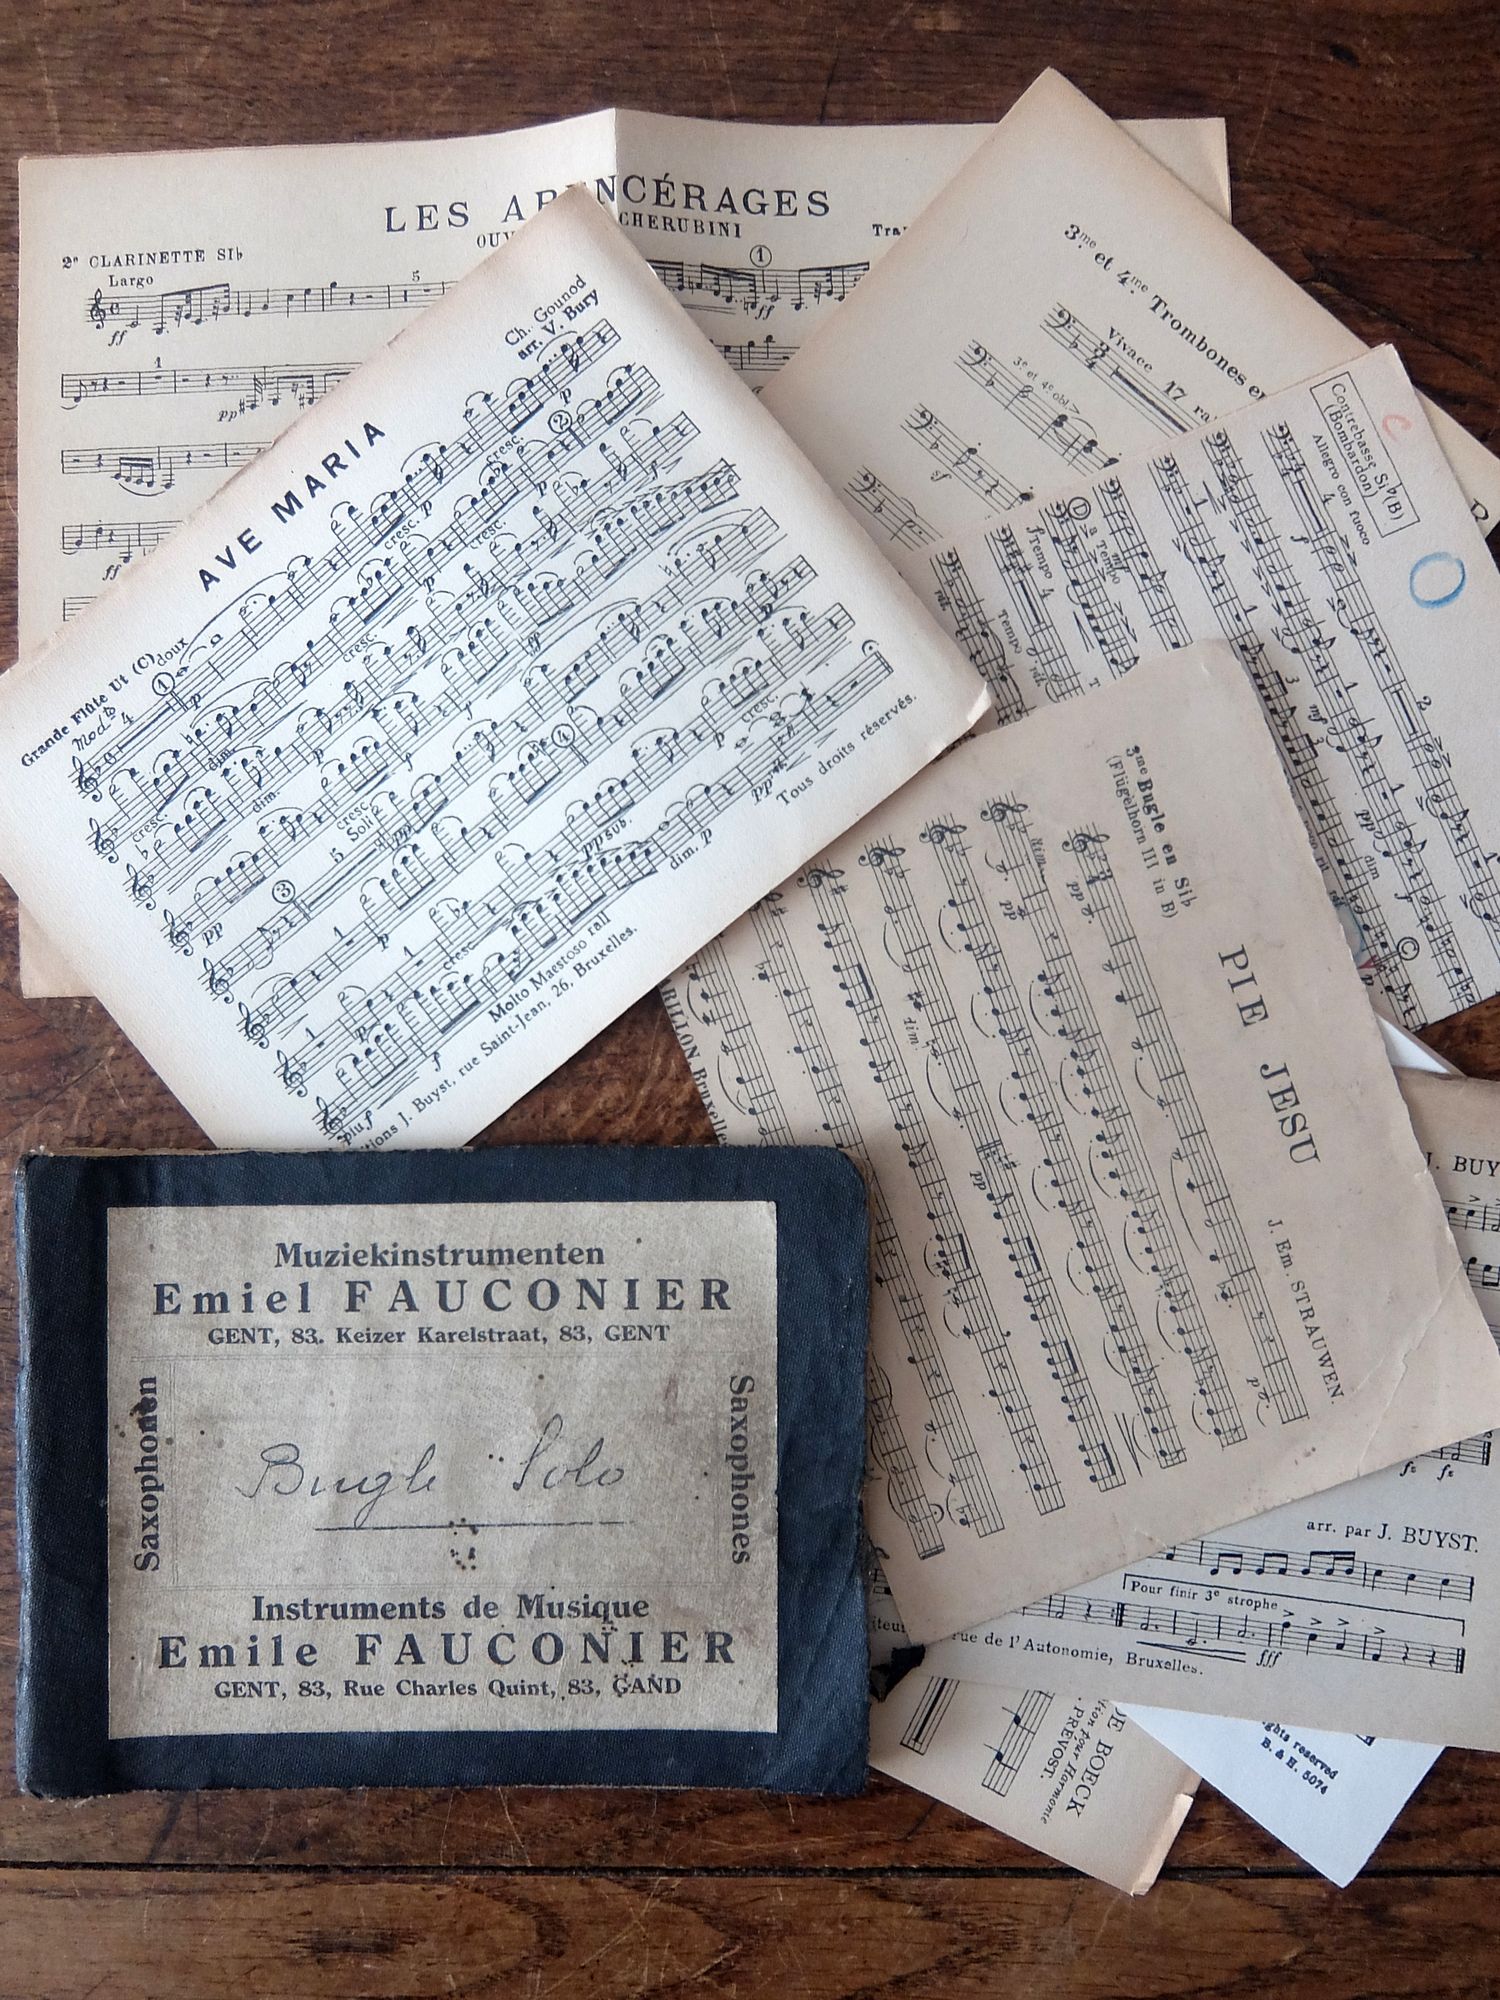 LES AB NCÉRAGES
OUV CHERUBINI
2e CLARINETTE SI♭
Largo
AVE MARIA
Ch. Gounod
arr. V. Bury
Grande Flûte Ut (C)
doux
Molto Maestoso rall
Tous droits réservés.
itions J. Buyst, rue Saint-Jean, 26, Bruxelles.
3me et 4me Trombones
Vivace
17
3e et 4e obl.
Contrebasse Si♭(B)
(Bombardon)
Allegro con fuoco
3me Bugle en Si♭
(Flügelhorn III in B)
PIE JESU
J. Em. STRAUWEN.
RILLON Bruxelle
J. BUY
arr. par J. BUYST.
Pour finir 3e strophe
rue de l'Autonomie, Bruxelles.
DE BOECK
PREVOST.
pour Harmonie
ghts reserved
B. & H. 5074
Muziekinstrumenten
Emiel FAUCONIER
GENT, 83. Keizer Karelstraat, 83, GENT
Saxophonen
Bugle Solo
Saxophones
Instruments de Musique
Emile FAUCONIER
GENT, 83, Rue Charles Quint, 83, GAND